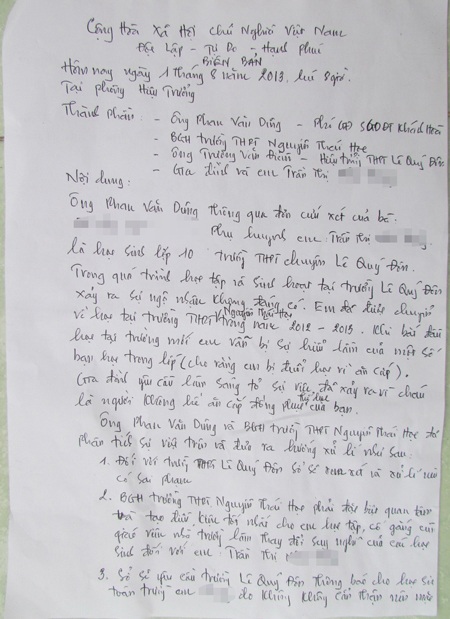 Cộng Hòa Xã Hội chủ Nghĩa Việt Nam
Độc Lập - Tự Do - Hạnh Phúc
BIÊN BẢN
Hôm nay ngày 1 tháng 8 năm 2013, lúc 8 giờ.
Tại phòng Hiệu Trưởng
Thành phần: - Ông Phan Văn Dũng - Phó GĐ SGDĐT Khánh Hòa
- BGH trường THPT Nguyễn Thái Học
- Ông Trương Văn Điềm - Hiệu trưởng THPT Lê Quý Đôn
- Gia đình và em Trần Thị
Nội dung:
Ông Phan Văn Dũng thông qua đơn cứu xét của bà
Phụ huynh em: Trần Thị
là học sinh lớp 10 trường THPT chuyên Lê Quý Đôn.
Trong quá trình học tập và sinh hoạt tại trường Lê Quý Đôn
xảy ra sự ngộ nhận không đáng có. Em đã được chuyển
về học tại trường THPT Nguyễn Thái Học trong năm 2012 - 2013. Khi bắt đầu
học tại trường mới em vẫn bị sự hiểu lầm của một số
bạn học trong lớp (cho rằng em bị đuổi học vì ăn cắp).
Gia đình yêu cầu làm sáng tỏ sự việc đã xảy ra vì cháu
là người không hề ăn cắp đồng phục thể dục của bạn.
Ông Phan Văn Dũng và BGH trường THPT Nguyễn Thái Học đã
phân tích sự việc trên và đưa ra hướng xử lí như sau:
1. Đối với trường THPT Lê Quý Đôn Sở sẽ xem xét và xử lí nếu
có sai phạm
2. BGH trường THPT Nguyễn Thái Học phải đặc biệt quan tâm
và tạo điều kiện tốt nhất cho em học tập, cố gắng cùng
giáo viên nhà trường làm thay đổi suy nghĩ của các học
sinh đối với em: Trần Thị
3. Sở sẽ yêu cầu trường Lê Quý Đôn thông báo cho học sinh
toàn trường em do không cẩn thận nên mặc